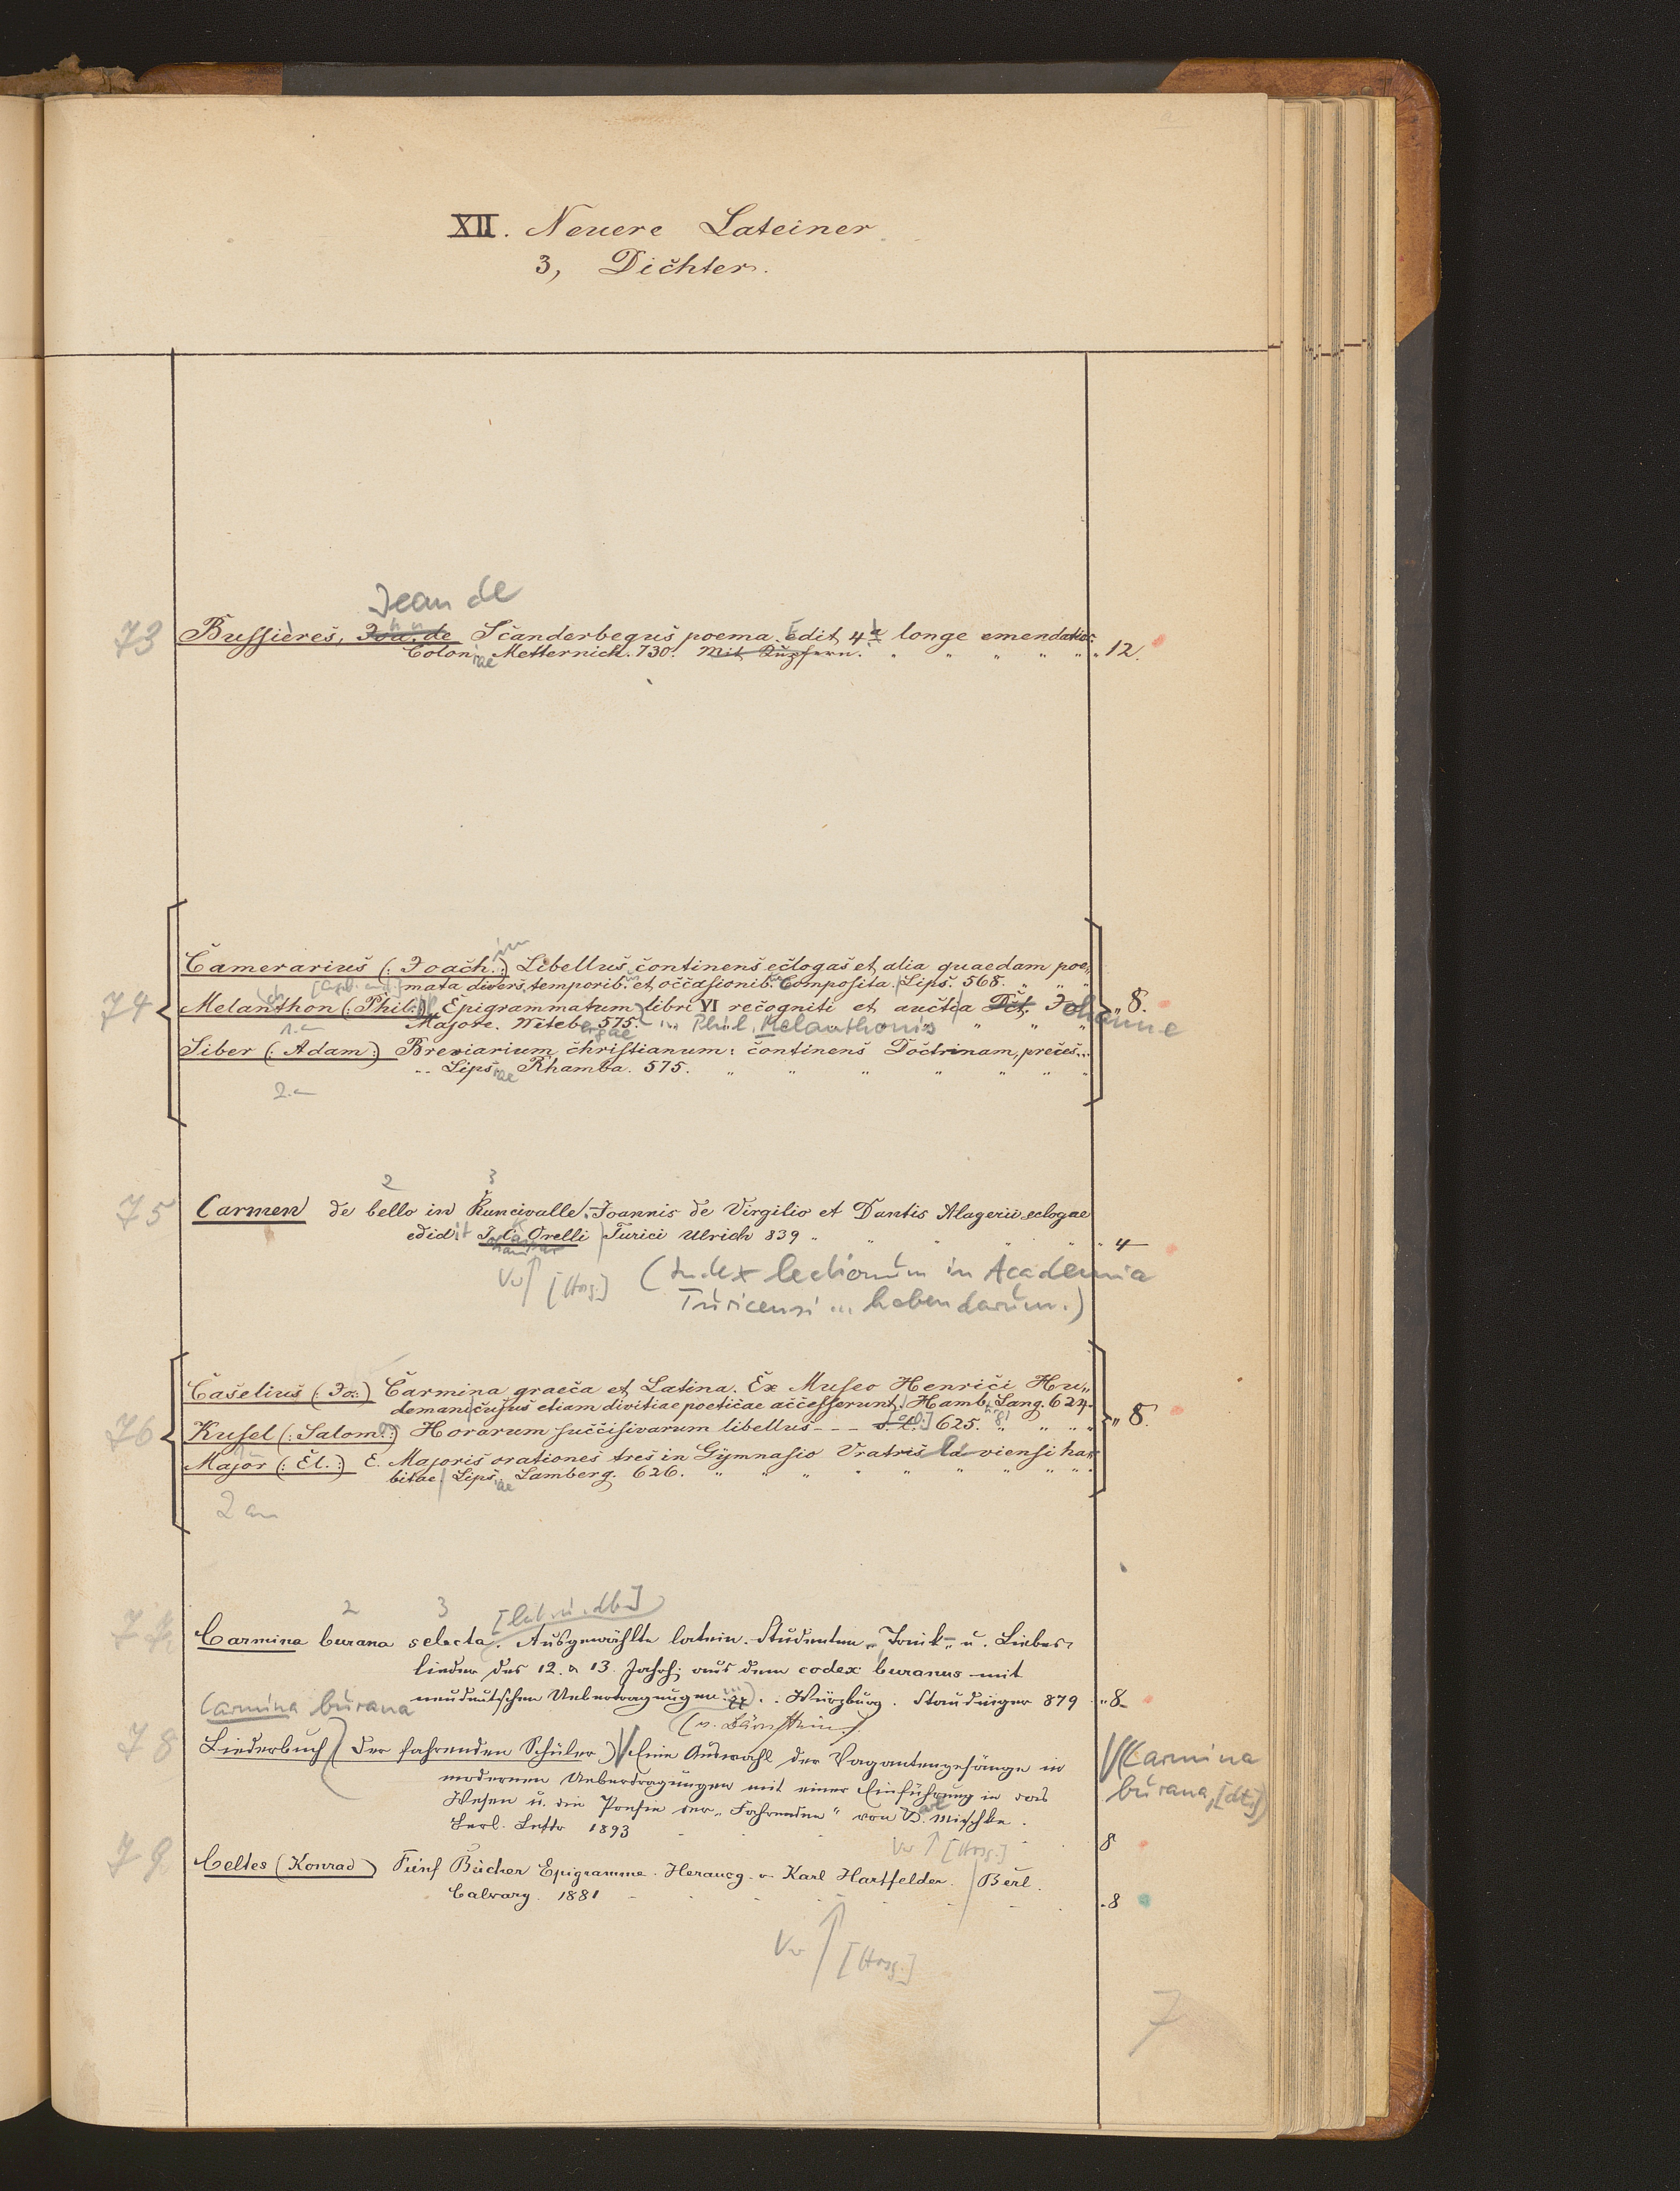 XII. Neuere Lateiner
3, Dichter.
Jean de
73 Bussières, Joa. de Scanderbegus poema. Edit. 4a longe emendatior.
Coloniae Metternich. 730. Mit Kupfern. " " " " " " 12.
74 Camerarius (: Joachim :) Libellus continens eclogas et alia quaedam poe„
mata divers. temporib. et occasionib. composita. Lips. 568. " " "
Melanthon (: Phil. :) Epigrammatum libri VI recogniti et aucti a Johanne " 8.
Majore. Witebergae 575. ... Phil. Melanthonis " " "
1. an
Siber (: Adam :) Breviarium christianum: continens Doctrinam, preces...
.. Lipsiae Rhamba. 575. " " " " " " "
2. an
2 3
75 Carmen de bello in Runcivalle. Joannis de Virgilio et Dantis Alagerii eclogae
edidit J. C. Orelli Turici Ulrich 839 " " " " " 4
Vw [Hrsg.] (Index lectionum in Academia
Turicensi ... habendarum.)
76 Caselius (: Jo: :) Carmina graeca et Latina. Ex Museo Henrici Hu„
demani cujus etiam divitiae poeticae accesserunt. Hamb. Lang. 624.
Kusel (: Salom. :) Horarum succisivarum libellus - - - s. l. [o.O.] 625. " " " " " 8.
Major (: El. :) E. Majoris orationes tres in Gymnasio Vratislaviensi ha„
bitae Lipsiae Lamberg. 626. " " " " " " " " "
2 an
2 3 [lat. u. dt.]
77 Carmina burana selecta. Ausgewählte latein. Studenten-, Trink- u. Liebes-
lieder des 12. u 13. Jahrh. aus dem codex buranus mit
neudeutschen Uebertragungen ... Würzburg. Staudinger 879 " 8
(v. Bärnstein)
Carmina burana
78 Liederbuch der fahrenden Schüler Eine Auswahl der Vagantengesänge in
modernen Uebertragungen mit einer Einführung in das
Wesen u. die Poesie der „Fahrenden“ von K. Mischke.
Berl. 1893 8
(Carmina
burana, [dt.])
Vw [Hrsg.]
79 Celtes (Konrad) Fünf Bücher Epigramme. Herausg. v. Karl Hartfelder. Berl.
Calvary. 1881 . 8
Vw [Hrsg.]
7